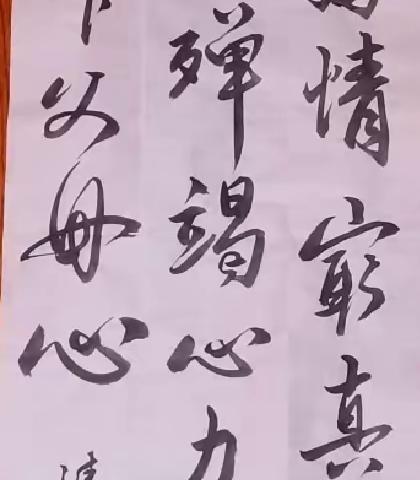 情最真
殫竭心力
父母心